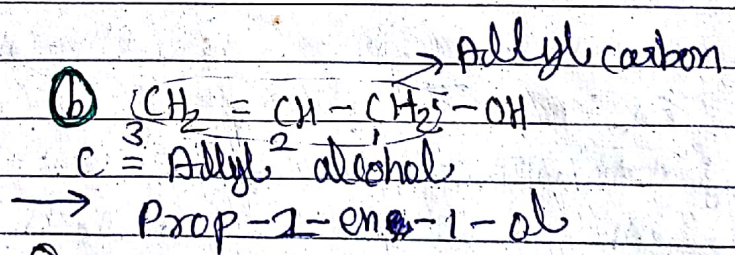 → Allyl carbon
(b) CH₂ = CH - CH₂ - OH
3 2 1
C = Allyl alcohol
→ Prop-2-en-1-ol